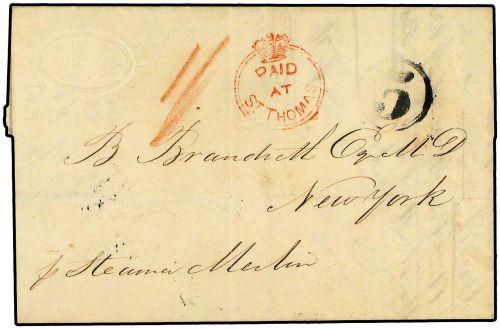 1/
PAID
AT
ST THOMAS
5
B Brandreth Esq M D
New York
p Steamer Merlin